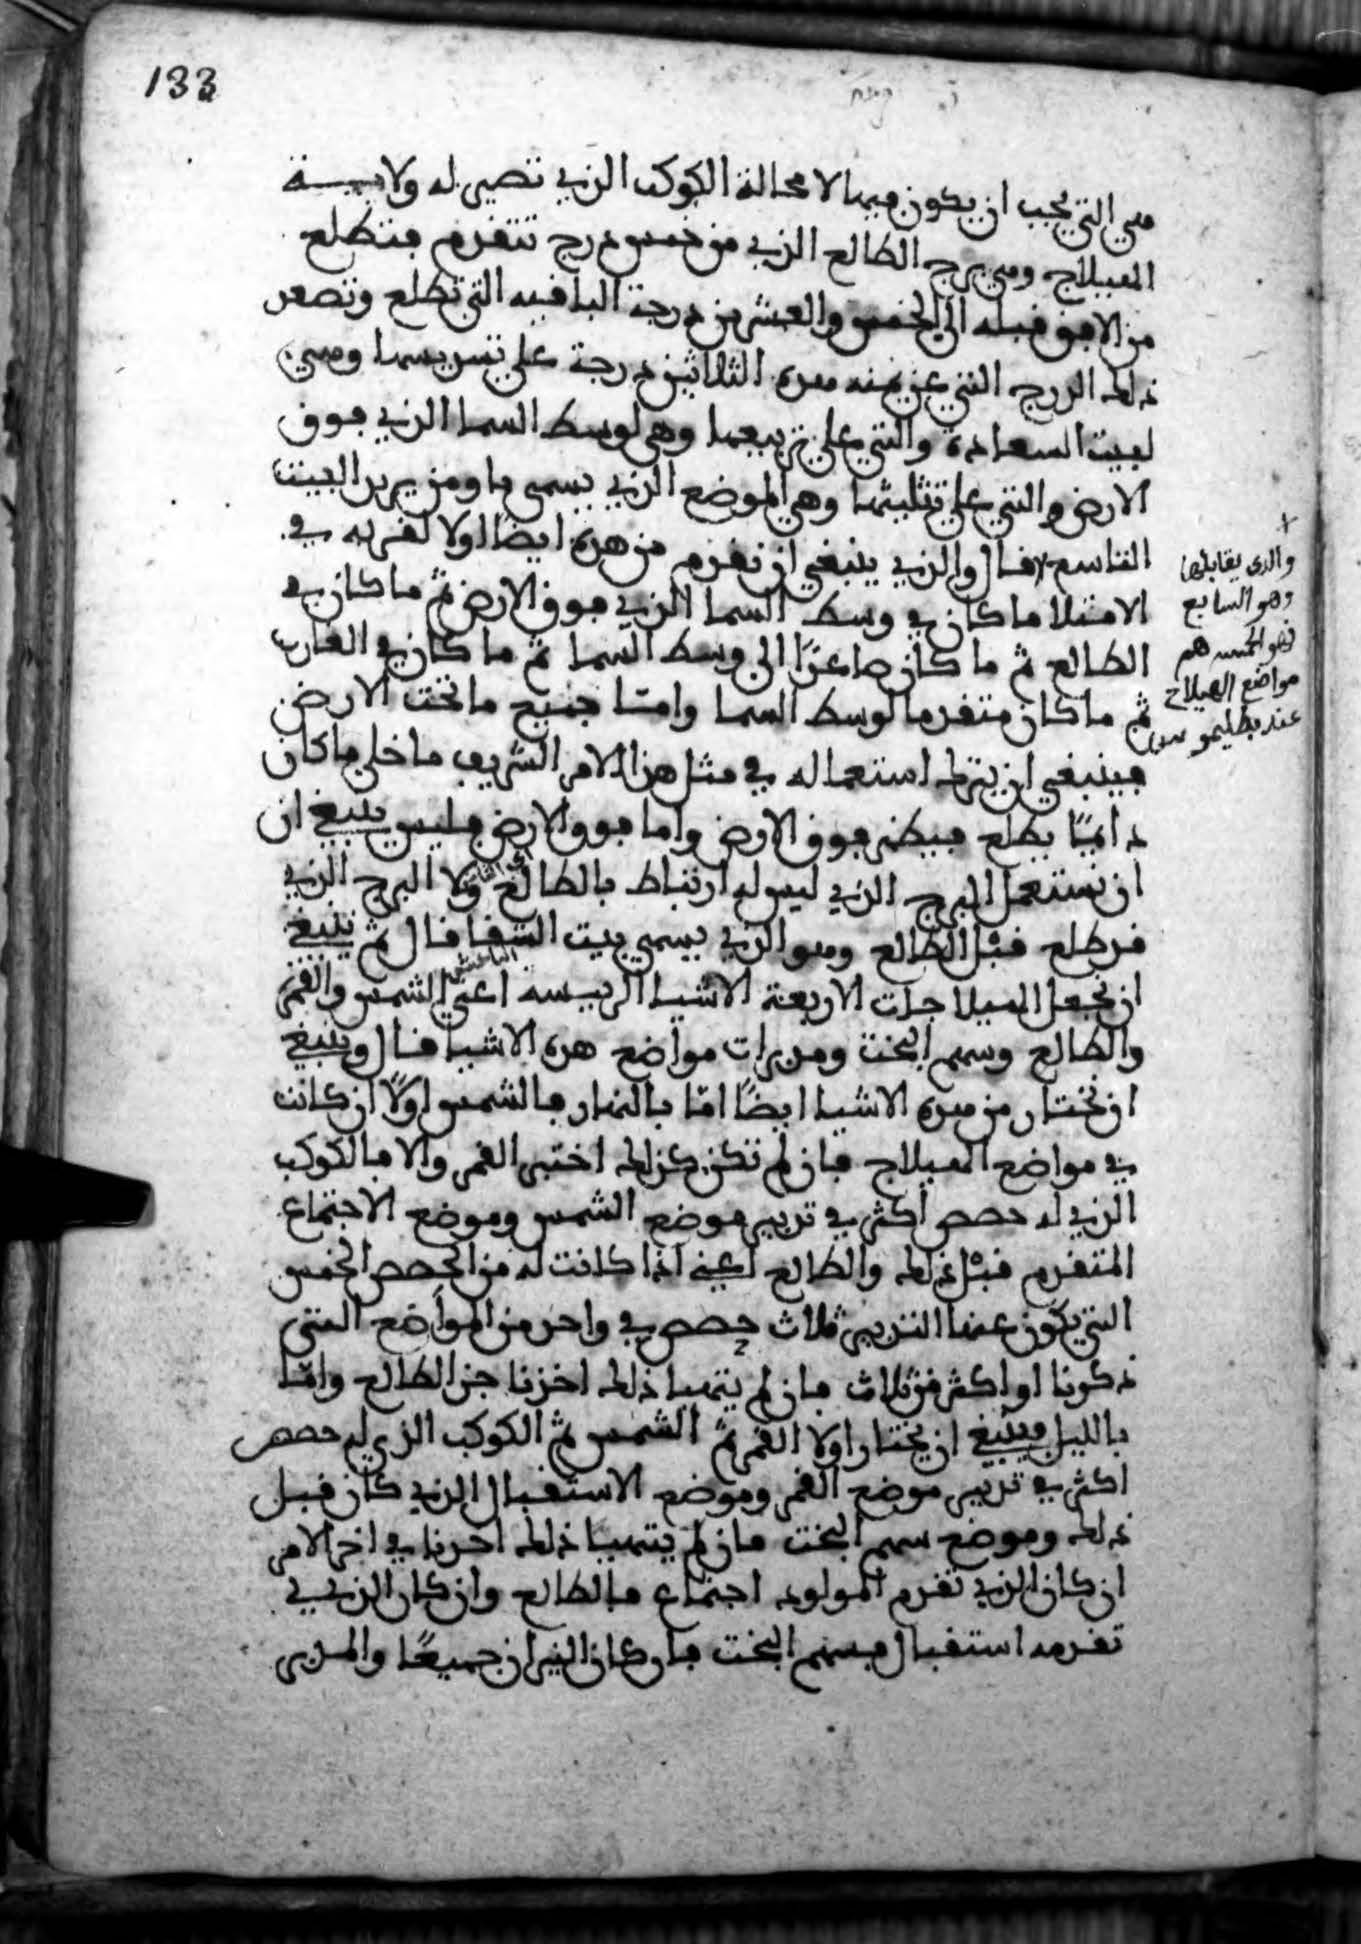 133
هي التي يجب ان يكون فيها لا محالة الكوكب الذي تصير له ولاية
الهيلاج وهي برج الطالع الذي من خمس درج تتقدم فتطلع
من الافق قبله الى الخمس والعشرين درجة الباقيه التي تطلع وتصعد
ذلك الدرج التي عن يمنه هذه الثلاثين درجة على تسديسها وهي
لبيت السعادة والتي على تربيعها وهي لوسط السما الذي فوق
الارض والتي على تثليثها وهي الموضع الذي يسمى با ومن يريد البيت
التاسع قال والذي ينبغي ان نقدم من هذه ايضًا اولا لقربه في
الامتلا ما كان في وسط السما الذي فوق الارض ثم ما كان في
الطالع ثم ما كان صاعدًا الى وسط السما ثم ما كان في الغارب
ثم ما كان متقدما لوسط السما وامّا جميع ما تحت الارض
فينبغي ان يترك استعماله في مثل هذا الامر الشريف ما خلى ما كان
دائمًا يطلع فيظهر فوق الارض واما فوق الارض فليس ينبغي ان
ان نستعمل البرج الذي ليس له ارتباط بالطالع ولا البرج الذي
قد طلع قبل الطالع وهو الذي يسمى بيت الشقا قال ثم ينبغي
ان نجعل الهيلاجات الاربعة الاشيا الرييسه اعني الشمس والقمر
والطالع وسهم البخت ومدبرات مواضع هذه الاشيا قال وينبغي
ان نختار من هذه الاشيا ايضًا امّا بالنهار فالشمس اولًا ان كانت
في مواضع الهيلاج فان لم تكن كذلك اختير القمر والا فالكوكب
الذي له حصص اكثر في تدبير موضع الشمس وموضع الاجتماع
المتقدم قبل ذلك والطالع اعني اذا كانت له من الحصص الخمس
التي يكون عنها التدبير ثلاث حصص في واحد من المواضع التي
ذكرنا او اكثر من ثلاث فان لم يتهيا ذلك اخذنا جز الطالع وامّا
بالليل فينبغي ان يختار اولا القمر ثم الشمس ثم الكوكب الذي له حصص
اكثر في تدبير موضع القمر وموضع الاستقبال الذي كان قبل
ذلك وموضع سهم البخت فان لم يتهيا ذلك اخذنا في اخر الامر
ان كان الذي تقدم المولود اجتماع فالطالع وان كان الذي
تقدمه استقبال فسهم البخت فان كان النيران جميعًا والمدبر
والذى يقابلها
وهو السابع
هم
مواضع الهيلاج
عند بطليموس